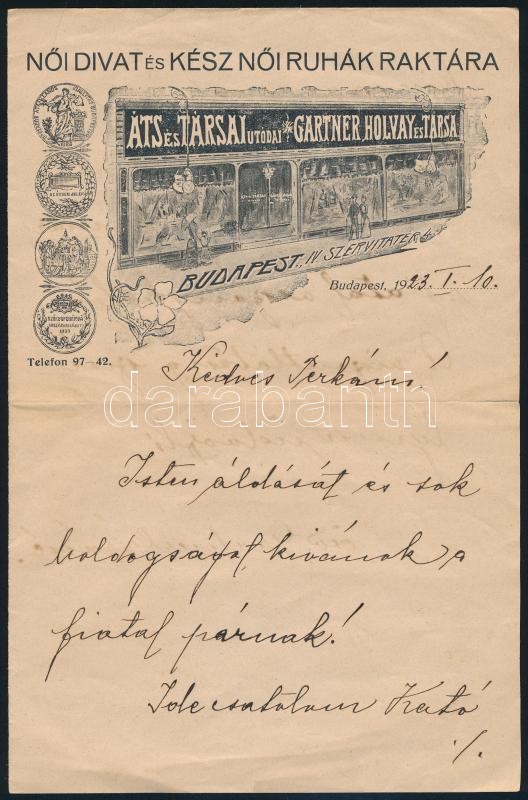 NŐI DIVAT ÉS KÉSZ NŐI RUHÁK RAKTÁRA
ÁTS ÉS TÁRSAI UTÓDAI GARTNER, HOLVAY ÉS TÁRSA
BUDAPEST, IV. SZERVITA TÉR 4.
Budapest, 1923. I. 10.
Telefon 97—42.
Kedves
darabanth
Isten áldását és sok
boldogságot kivánok a
fiatal párnak!
Ide csatolom Kató
./.